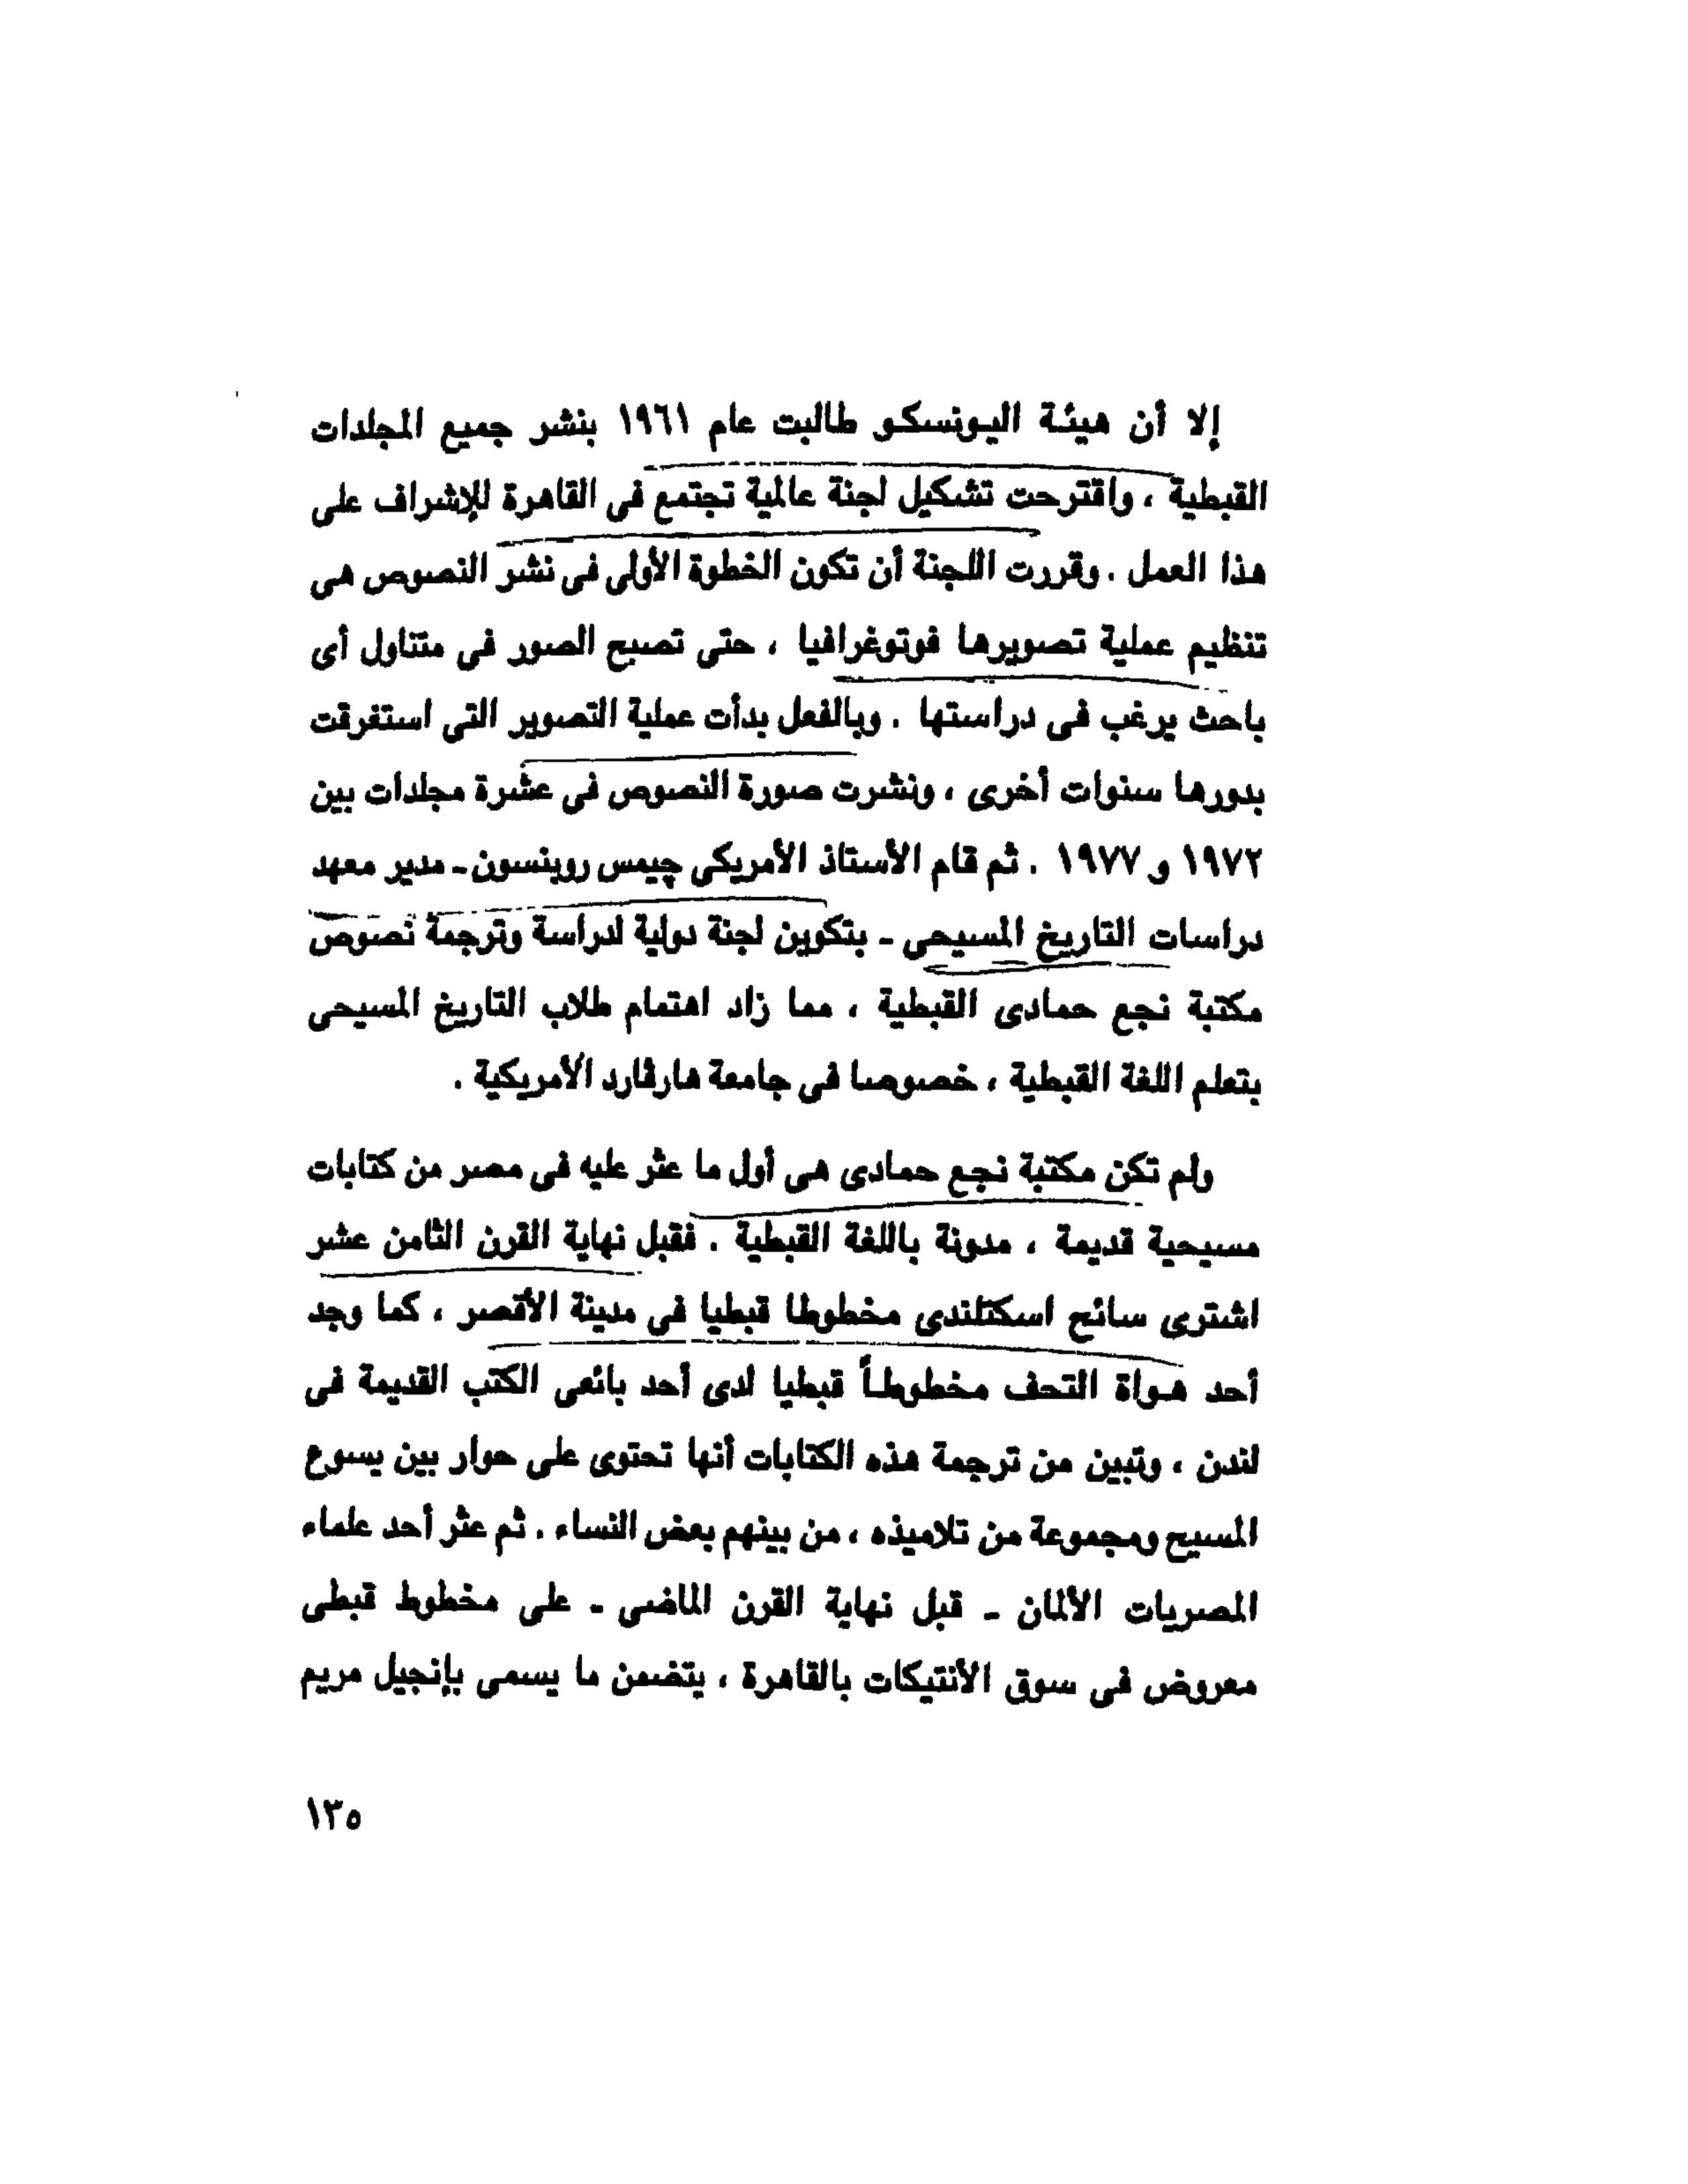 إلا أن هيئة اليونسكو طالبت عام ١٩٦١ بنشر جميع المجلدات
القبطية ، واقترحت تشكيل لجنة عالمية تجتمع فى القاهرة للإشراف على
هذا العمل . وقررت اللجنة أن تكون الخطوة الأولى فى نشر النصوص هى
تنظيم عملية تصويرها فوتوغرافيا ، حتى تصبح الصور فى متناول أى
باحث يرغب فى دراستها . وبالفعل بدأت عملية التصوير التى استغرقت
بدورها سنوات أخرى ، ونشرت صورة النصوص فى عشرة مجلدات بين
١٩٧٢ و ١٩٧٧ . ثم قام الأستاذ الأمريكى چيمس روبنسون ـ مدير معهد
دراسات التاريخ المسيحى ـ بتكوين لجنة دولية لدراسة وترجمة نصوص
مكتبة نجع حمادى القبطية ، مما زاد اهتمام طلاب التاريخ المسيحى
بتعلم اللغة القبطية ، خصوصا فى جامعة هارڤارد الأمريكية .
ولم تكن مكتبة نجع حمادى هى أول ما عثر عليه فى مصر من كتابات
مسيحية قديمة ، مدونة باللغة القبطية . فقبل نهاية القرن الثامن عشر
اشترى سائح اسكتلندى مخطوطا قبطيا فى مدينة الأقصر ، كما وجد
أحد هواة التحف مخطوطاً قبطيا لدى أحد بائعى الكتب القديمة فى
لندن ، وتبين من ترجمة هذه الكتابات أنها تحتوى على حوار بين يسوع
المسيح ومجموعة من تلاميذه ، من بينهم بعض النساء . ثم عثر أحد علماء
المصريات الألمان ـ قبل نهاية القرن الماضى ـ على مخطوط قبطى
معروض فى سوق الأنتيكات بالقاهرة ، يتضمن ما يسمى بإنجيل مريم
١٣٥